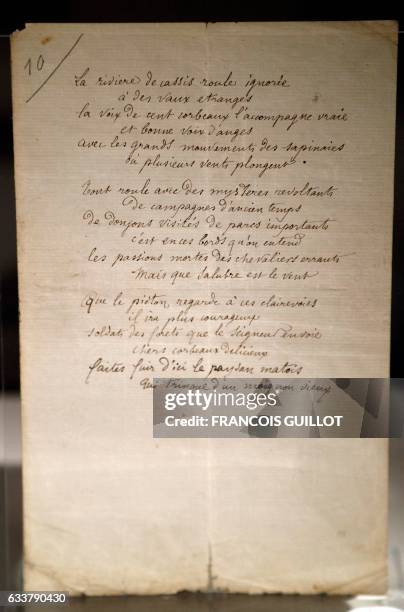 10
La rivière de cassis roule ignorée
à des vaux etranges
la voix de cent corbeaux l'acompagne vraie
et bonne voix d'anges
avec les grands mouvements des sapinaies
où plusieurs vents plongent.
Tout roule avec des mysteres revoltants
De campagnes d'ancien temps
De donjons visités de parcs importants
c'est en ces bords qu'on entend
les passions mortes des chevaliers errants
Mais que salubre est le vent
Que le piéton regarde à ces clairevoies
il ira plus courageux
soldats des forets que le seigneur envoie
chers corbeaux delicieux
faites fuir d'ici le paysan matois
Qui trinque d'un moignon vieux
AFP
FRANÇOIS GUILLOT
633790430